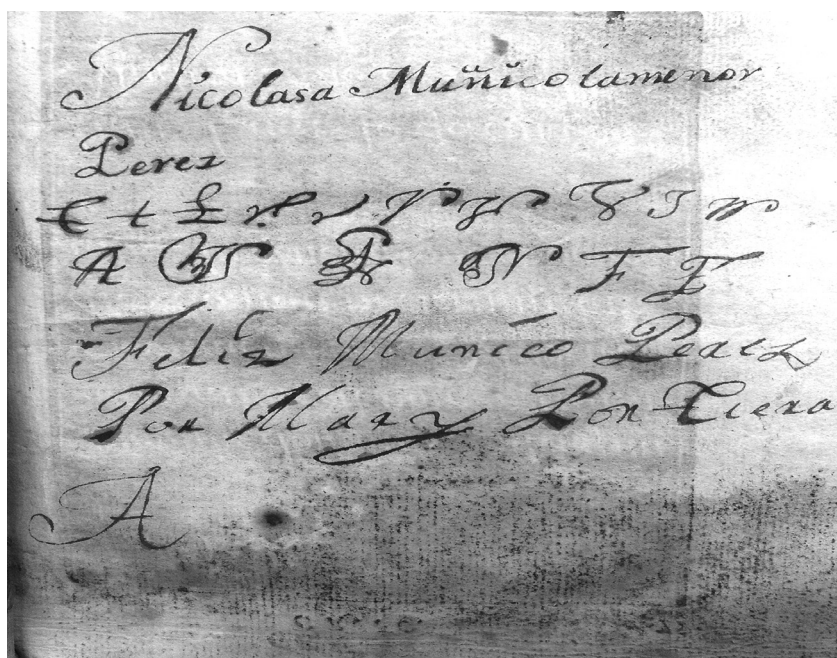 Nicolasa Muñico lamenor
Perez
A
F F
Feliz Munico Perez
Por Mar y Por Tiera
A